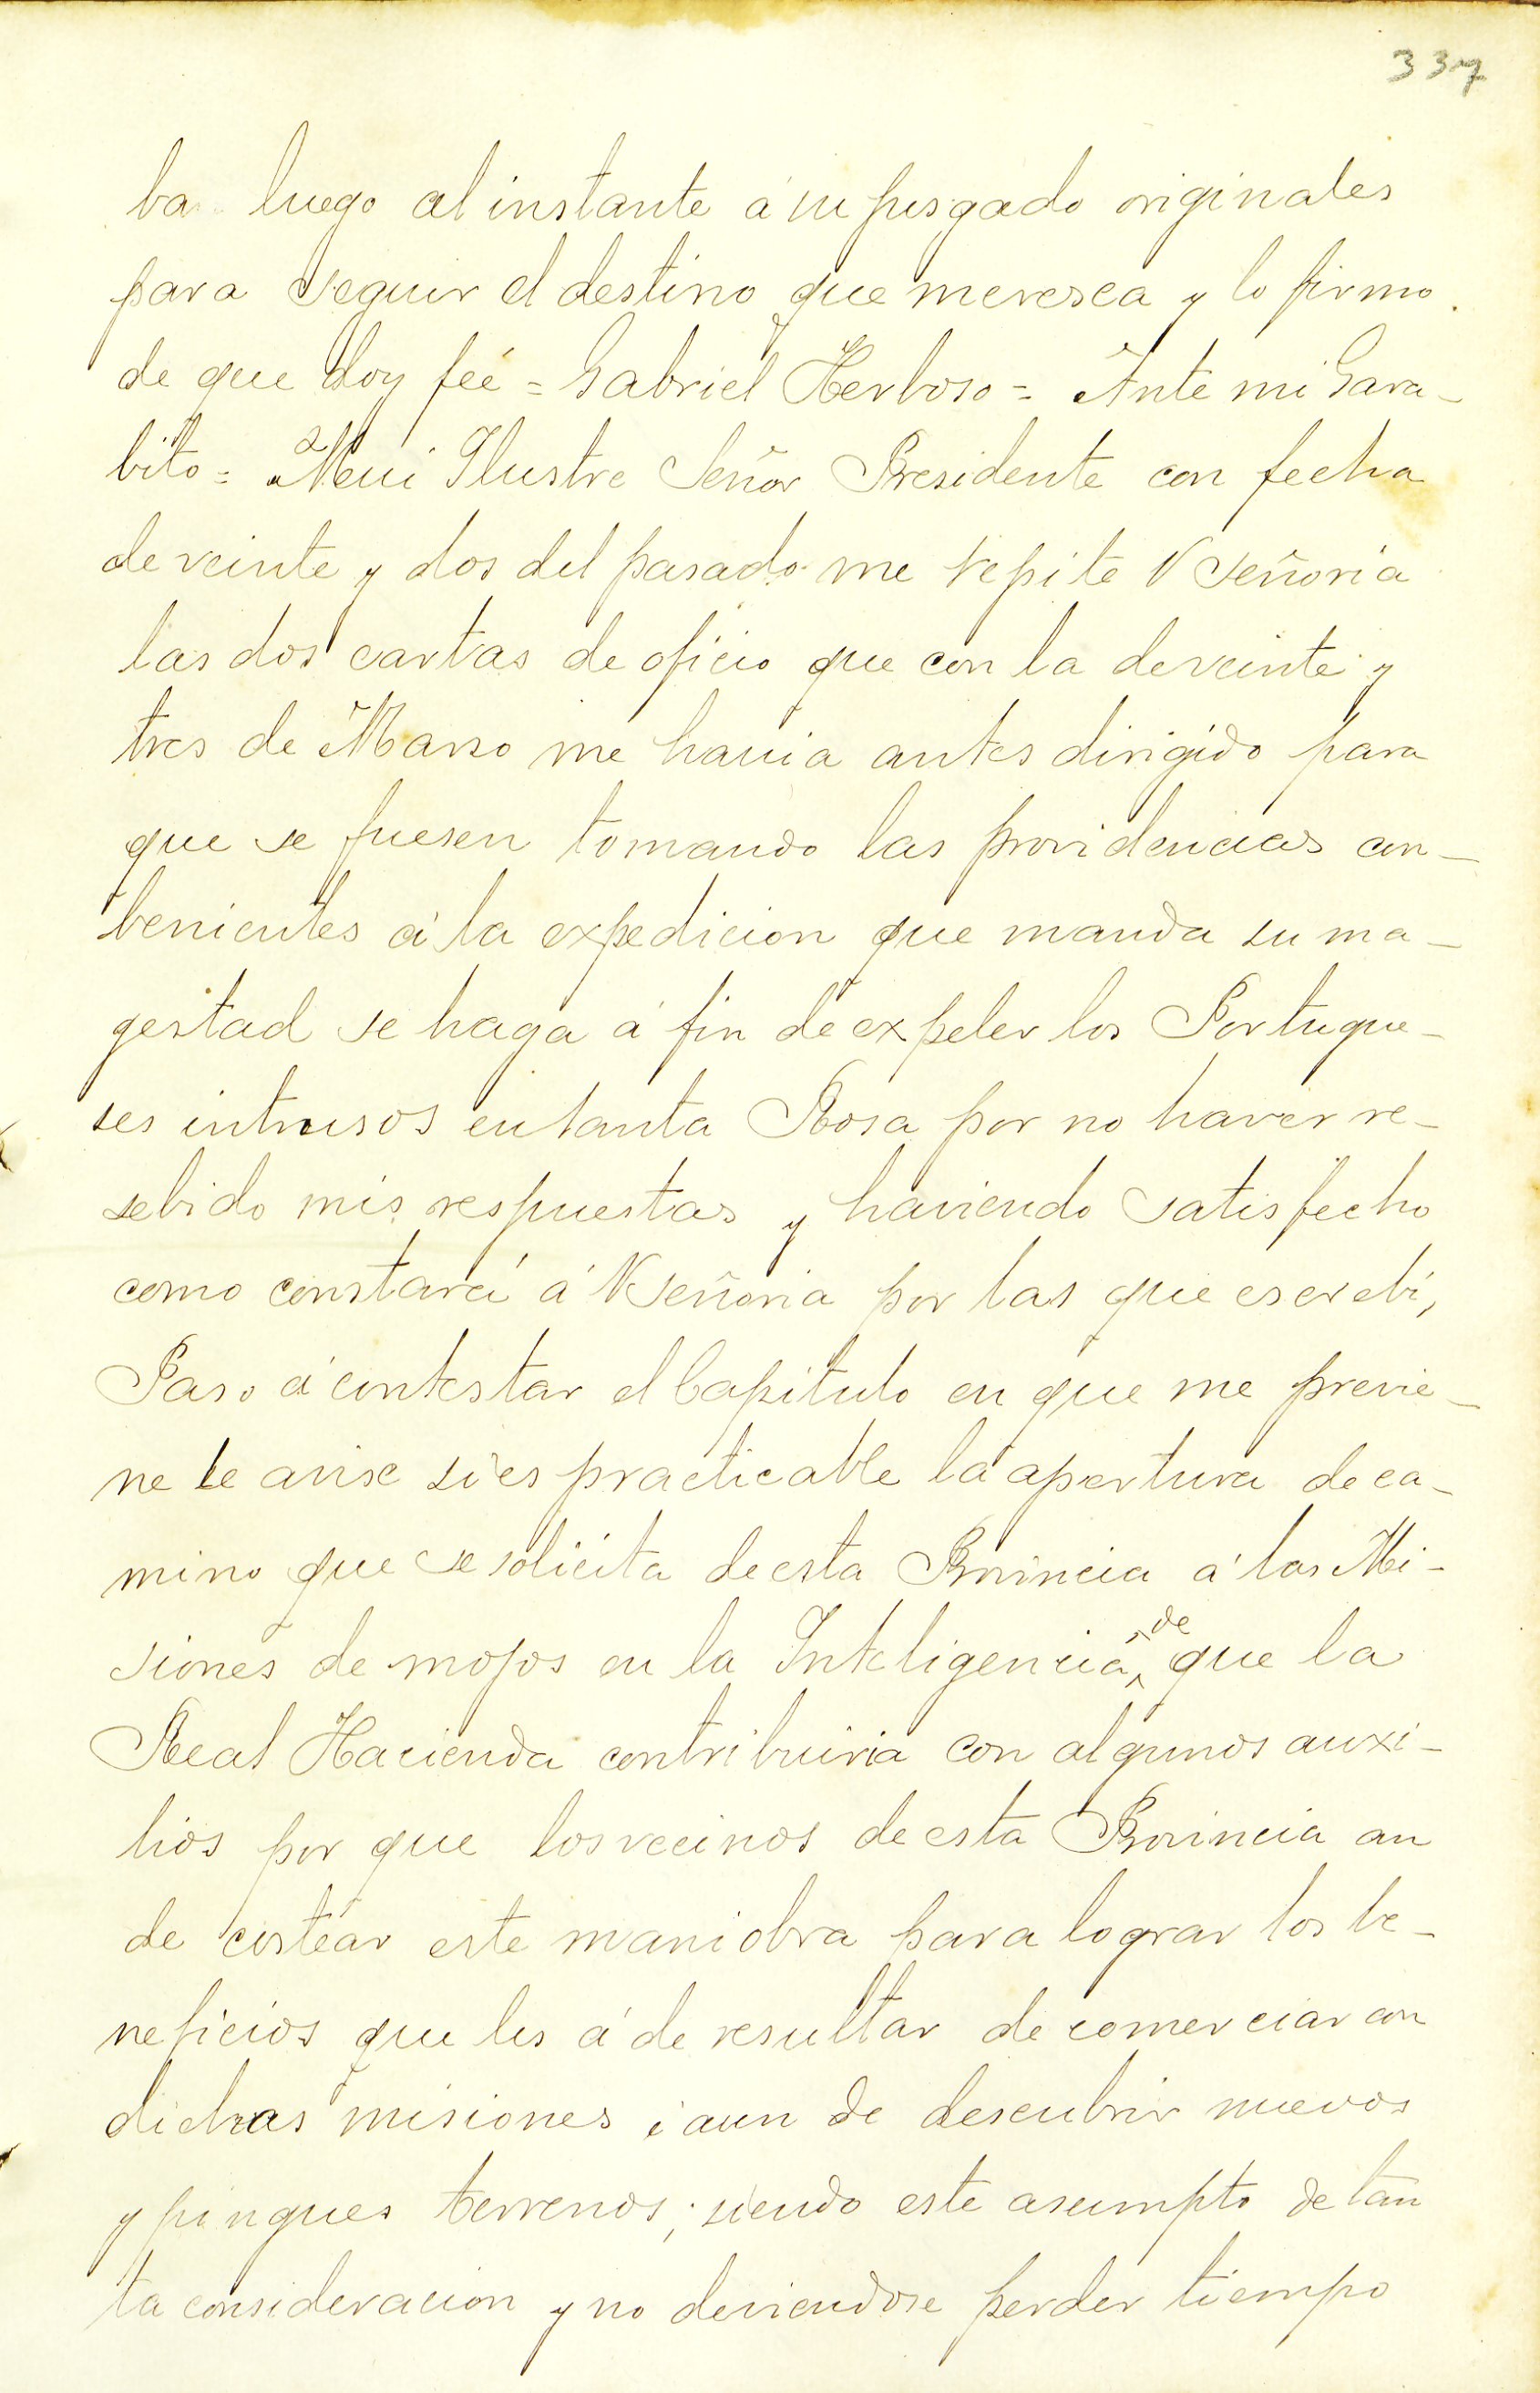 337
ba luego al instante á su jusgado originales
para seguir el destino que meresca y lo firmo.
de que doy feé = Gabriel Herboso = Ante mi Gara-
bito = Mui Ilustre Señor Presidente con fecha
de veinte y dos del pasado me repite V Señoria
las dos cartas de oficio que con la de veinte y
tres de Marso me hauia antes dirigido para
que se fuesen tomando las providencias con-
benientes á la expedicion que manda su ma-
gestad se haga á fin de expeler los Portugue-
ses intrusos en Santa Rosa por no haver re-
sebido mis respuestas y haviendo satisfecho
como constará á V Señoria por las que escrebi,
Paso á contestar el Capitulo en que me previe-
ne le avise si es practicable la apertura de ca-
mino que se solicita de esta Provincia á las Mi-
siones de mojos en la Inteligencia, de que la
Real Hacienda contribuiria con algunos auxi-
lios por que los vecinos de esta Provincia an
de costear este maniobra para lograr los be-
neficios que les á de resultar de comerciar con
dichas misiones i aun de descubrir nuevos
y pingues terrenos; siendo este asumpto de tan
ta consideracion y no deviendose perder tiempo